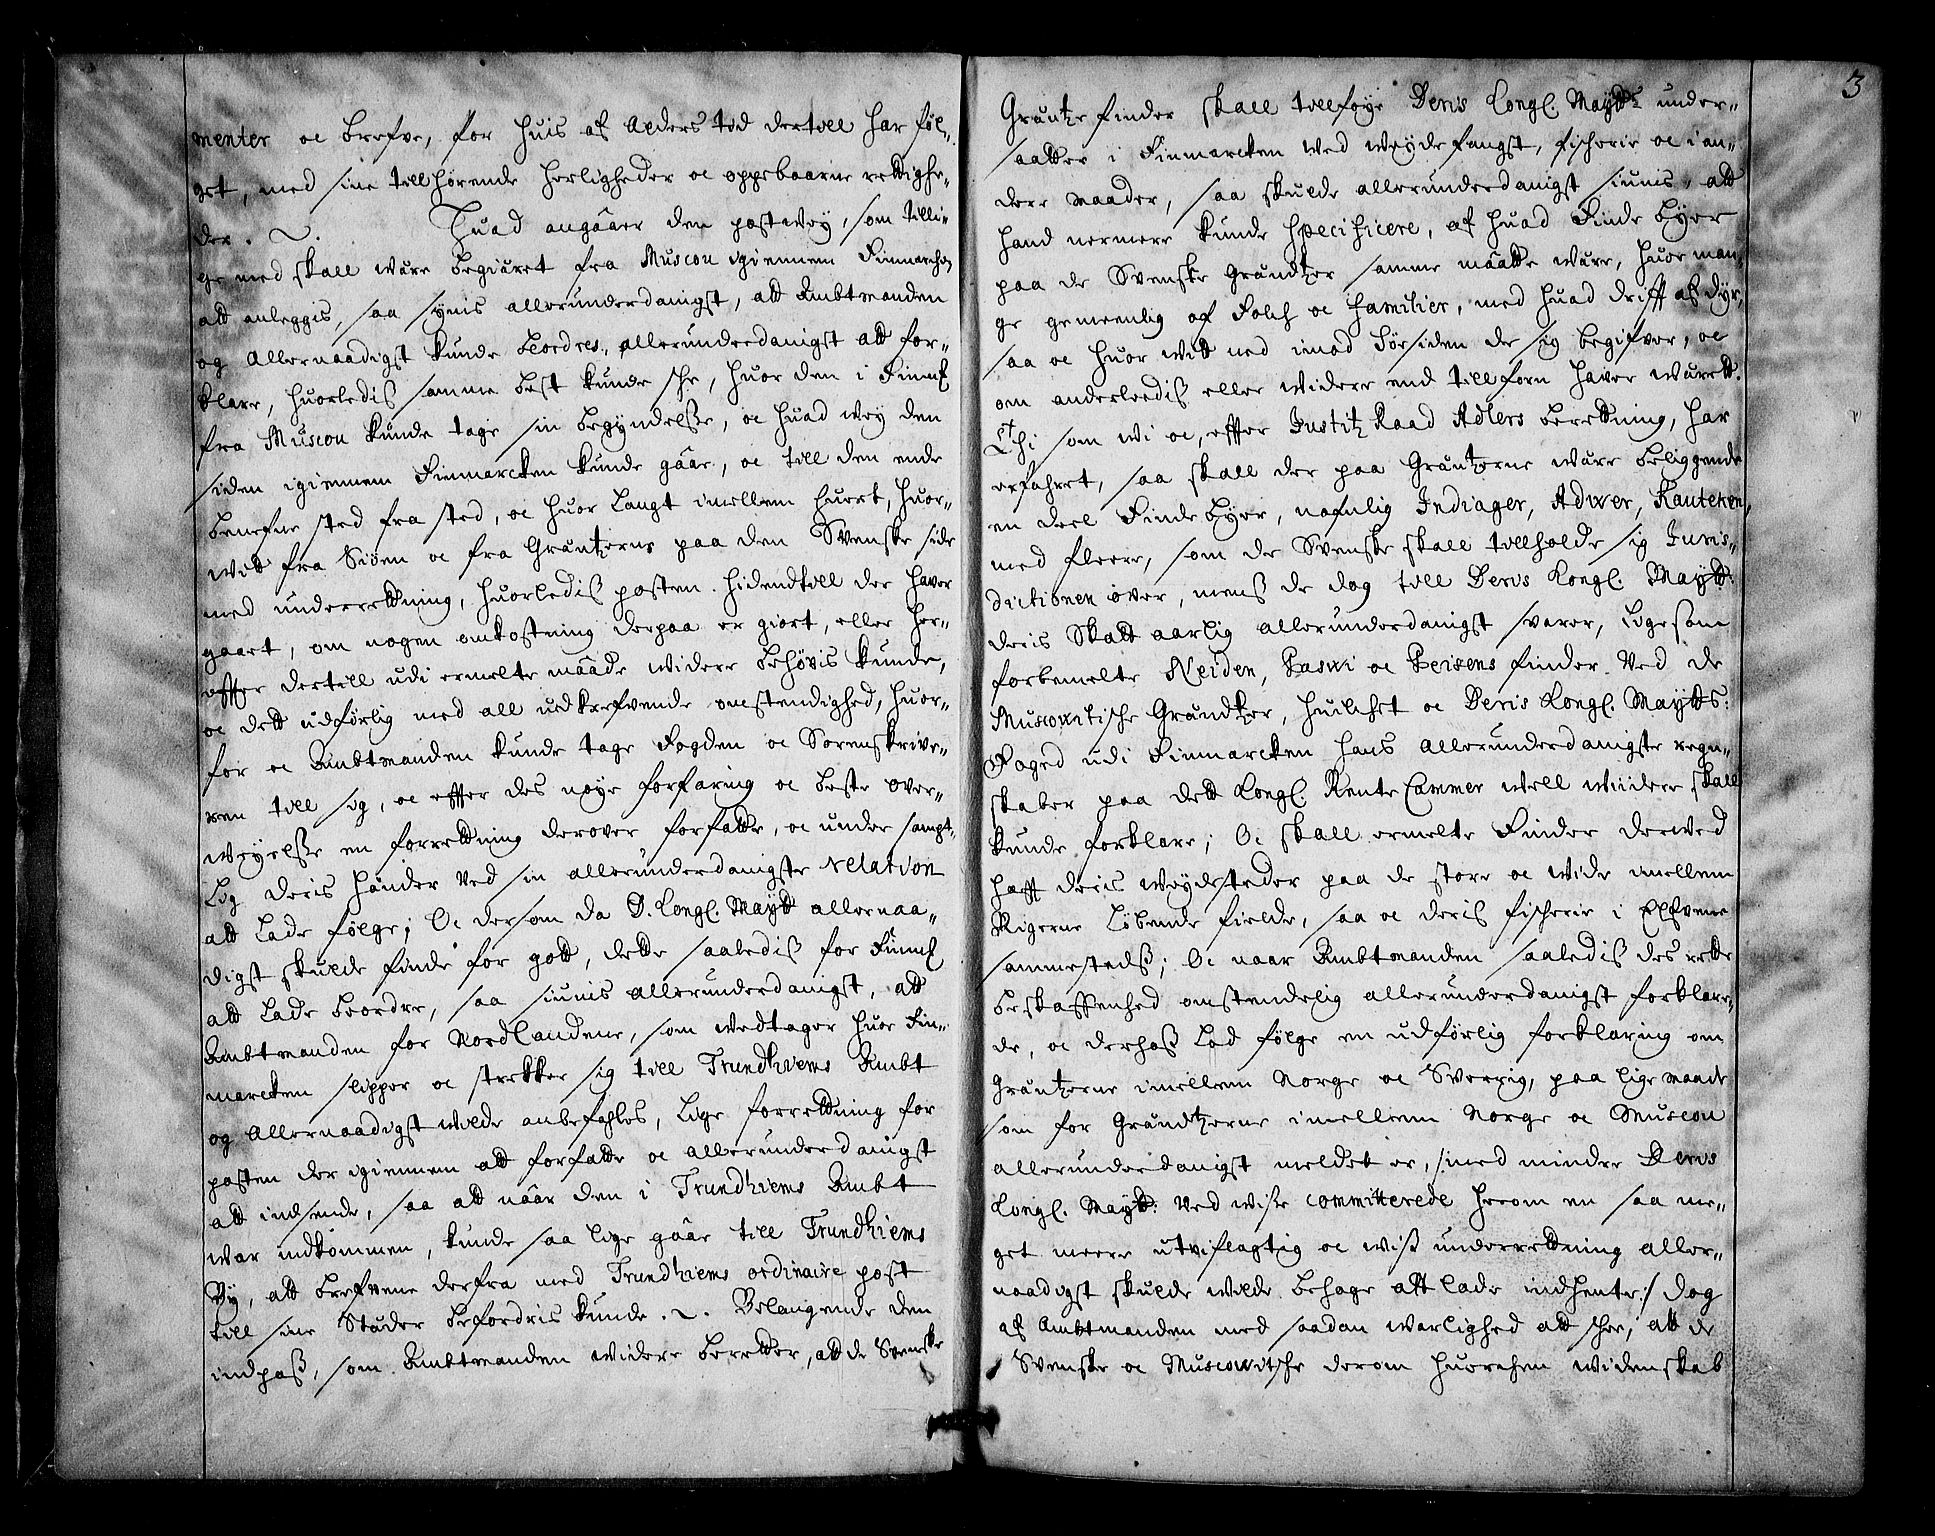 menter oc brefve, for huis af Alders tid dertill har föl-
get, med sine tillhörende herligheder oc oppebaarne rettighe-
der. Huad angåaer den postvey, som tilli-
ge med skall være begiäret fra Muscou igiennem Finmarchen
att anleggis, saa synis allerunderdanigst, att Ambtmanden
og Allernaadigst kunde beordres, allerunderdanigst att for-
klare, huorledis samme best kunde skee, huor den i Finmk
fra Muscou kunde tage sin begyndelse, oc huad vey den
siden igiennem Finmarcken kunde gåae, oc till den ende
benefne sted fra sted, oc huor langt imellem huert, huor-
vit fra Siøen oc fra Gräntzerne paa den Svenske side
med underretning, huorledis posten hidendtill der hafver
gaaet, om nogen omkostning derpaa er giort, eller her-
effter dertill udi ermelte måade widere behöfvis kunde,
oc dett udförlig med all udkrefvende omstendighed, huor-
for oc Ambtmanden kunde tage Fogden oc Sorenskrive-
ren till sig, oc effter des nöye forfaring oc beste over-
veyelse en forretning derover forfatte, oc under sampt-
lig deris Händer Ved sin allerunderdanigste relation
att lade fölge; Oc dersom da D. Kongl. Maytt allernaa-
digst skulde finde for gott, dette saaledis for Finmk
att lade beordre, saa siunis allerunderdanigst, att
Ambtmanden for Nordlandene, som vedtager huor Fin-
marcken slipper oc strekker sig till Trundhiems Ambt
og Allernaadigst wilde anbefahles, lige forretning for
posten der igiennem att forfatte oc allerunderdanigst
att indsende, saa att nåar den i Trundhiems Ambt
war indkommen, kunde saa lige gåae till Trundhiems
By, att brefvene derfra med Trundhiems ordinaire post
till sine Städer befordris kunde. Belangende den
indpass, som Ambtmanden widere beretter, att de Svenske
3
Gräntze finder skall tillföye Deris Kongl. Maytts under-
saatter i Finmarcken wed weydefangst, fischerie oc i an-
dere maader, saa skulde allerunderdanigst siunis, att
hand nermere kunde specificere, af huad Finde byer
paa de Svenske Gräntzer samme måatte være, huor man-
ge gemeenlig af Folck oc familier, med huad drifft af dyr,
saa oc huor vitt ned imod Söesiden de sig begifver, oc
om anderledis eller widere end tillforn hafver wäret.
Thi som wi oc, effter Justitz Raad Adlers beretning, har
erfahret, saa skall der paa Gräntzerne være beliggende
en deel Finde byer, nefnlig Indiager, Adwer, Kauteken,
med fleere, som de Svenske skall tillholde sig Juris-
dictionen over, mens de dog till Deris Kongl. Maytt:
deris Skatt aarlig allerunderdanigst svarer, ligesom
forbemelte Neiden, Paswi oc Peisens finder. Ved de
Muscowitische Gräntzer, huilchet oc Deris Kongl. Maytts:
Foged udi Finmarcken hans allerunderdanigste regn-
skaber paa dett Kongl. Rente Cammer well widere skall
kunde forklare; Oc skall ermelte Finder derved
hafft deris weydesteder paa de store oc wide imellem
Rigerne löbende fielde, saa oc deris fischerie i Elfvene
sammesteds; Oc naar Ambtmanden saaledis des rette
beskaffenhed omstendelig allerunderdanigst forklare-
de, oc derhos lod fölge en udförlig forklaring om
Gräntzerne imellem Norge oc Sverrig, paa lige maade
som for Gräntzerne imellem Norge oc Muscou
allerunderdanigst meldet er, /: med mindre Deris
Kongl. Maytt: Ved wisse committerede herom en saa me-
get meere utviflagtig oc wiss underretning aller-
naadigst skulde wilde behage att lade indhente :/ Dog
af Ambtmanden med saadan warlighed att skee, att de
Svenske oc Muscowitsche derom huerchen widenskab